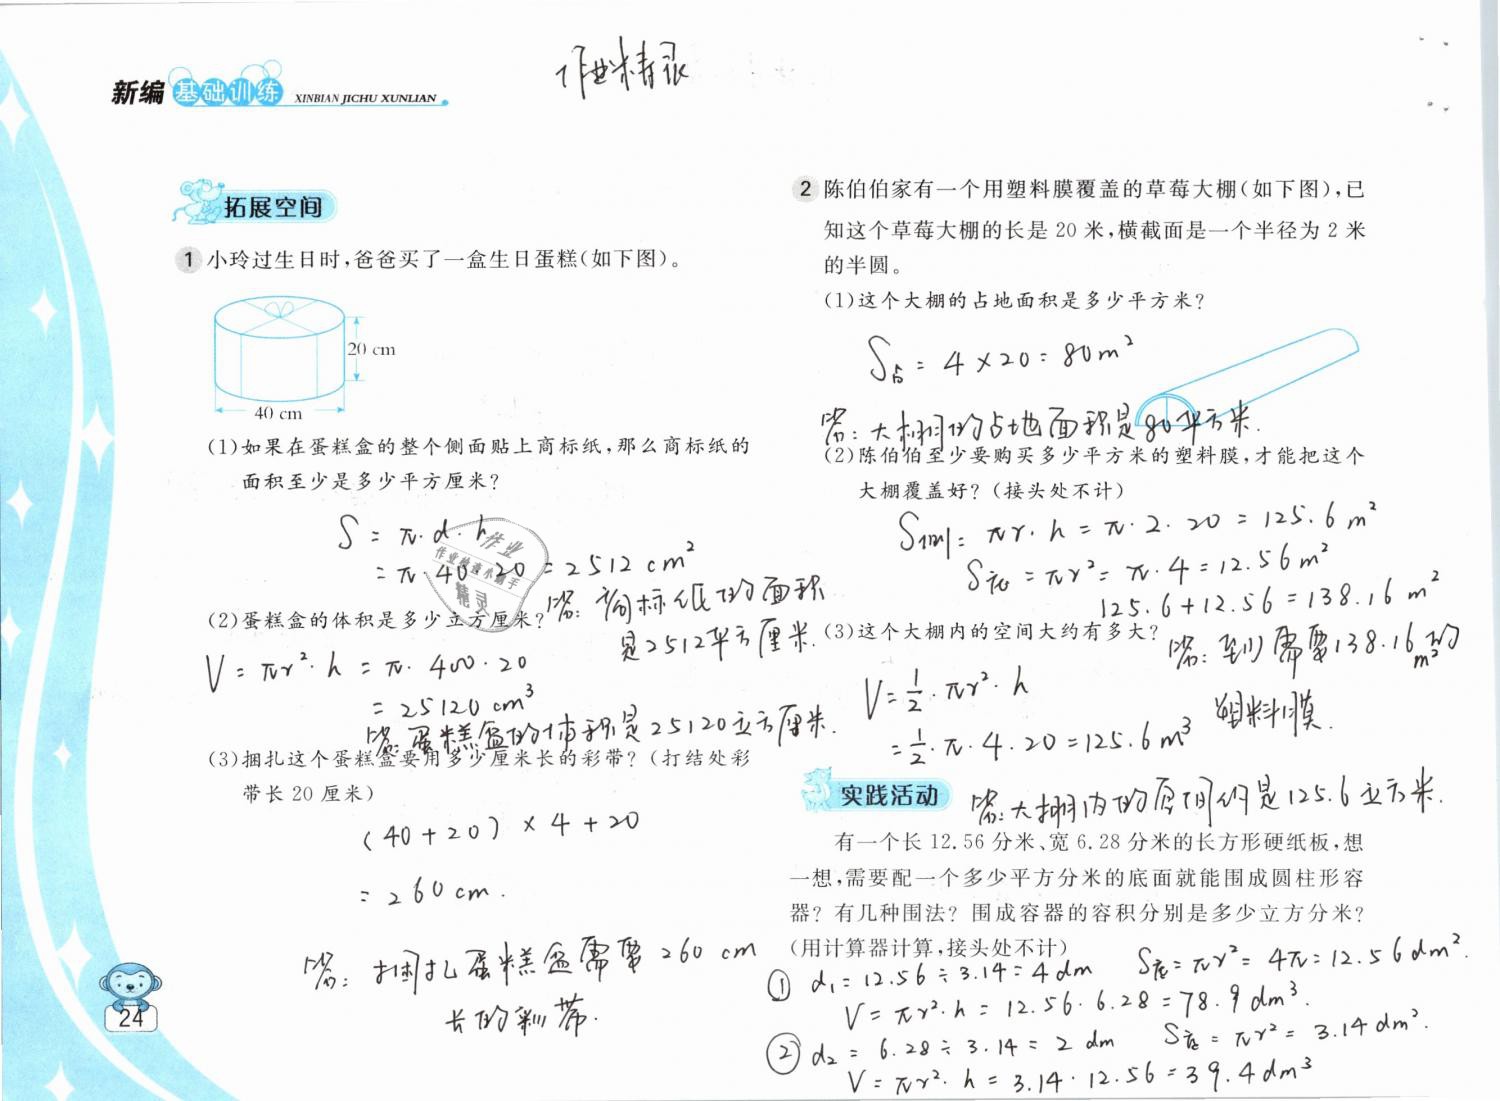 作业精灵
新编基础训练 XINBIAN JICHU XUNLIAN
拓展空间
1 小玲过生日时,爸爸买了一盒生日蛋糕(如下图)。
20 cm
40 cm
(1)如果在蛋糕盒的整个侧面贴上商标纸,那么商标纸的
面积至少是多少平方厘米?
S = π·d·h
= π·40·20 = 2512 cm²
答:商标纸的面积
是2512平方厘米.
作业
作业检查小帮手
精灵
(2)蛋糕盒的体积是多少立方厘米?
V = πr²·h = π·400·20
= 25120 cm³
答:蛋糕盒的体积是25120立方厘米.
(3)捆扎这个蛋糕盒要用多少厘米长的彩带?(打结处彩
带长 20 厘米)
(40+20)×4+20
= 260 cm.
答:捆扎蛋糕盒需要260 cm
长的彩带.
24
2 陈伯伯家有一个用塑料膜覆盖的草莓大棚(如下图),已
知这个草莓大棚的长是 20 米,横截面是一个半径为 2 米
的半圆。
(1)这个大棚的占地面积是多少平方米?
S占 = 4×20 = 80m²
答:大棚的占地面积是80平方米.
(2)陈伯伯至少要购买多少平方米的塑料膜,才能把这个
大棚覆盖好?(接头处不计)
S侧 = πr·h = π·2·20 = 125.6 m²
S底 = πr² = π·4 = 12.56 m²
125.6+12.56 = 138.16 m²
答:至少需要138.16 m²的
塑料膜.
(3)这个大棚内的空间大约有多大?
V = 1/2·πr²·h
= 1/2·π·4·20 = 125.6 m³
答:大棚内的空间约是125.6立方米.
实践活动
有一个长 12.56 分米、宽 6.28 分米的长方形硬纸板,想
一想,需要配一个多少平方分米的底面就能围成圆柱形容
器?有几种围法?围成容器的容积分别是多少立方分米?
(用计算器计算,接头处不计)
① d₁ = 12.56÷3.14 = 4 dm S底 = πr² = 4π = 12.56 dm².
V = πr²·h = 12.56·6.28 = 78.9 dm³.
② d₂ = 6.28÷3.14 = 2 dm S底 = πr² = 3.14 dm².
V = πr²·h = 3.14·12.56 = 39.4 dm³